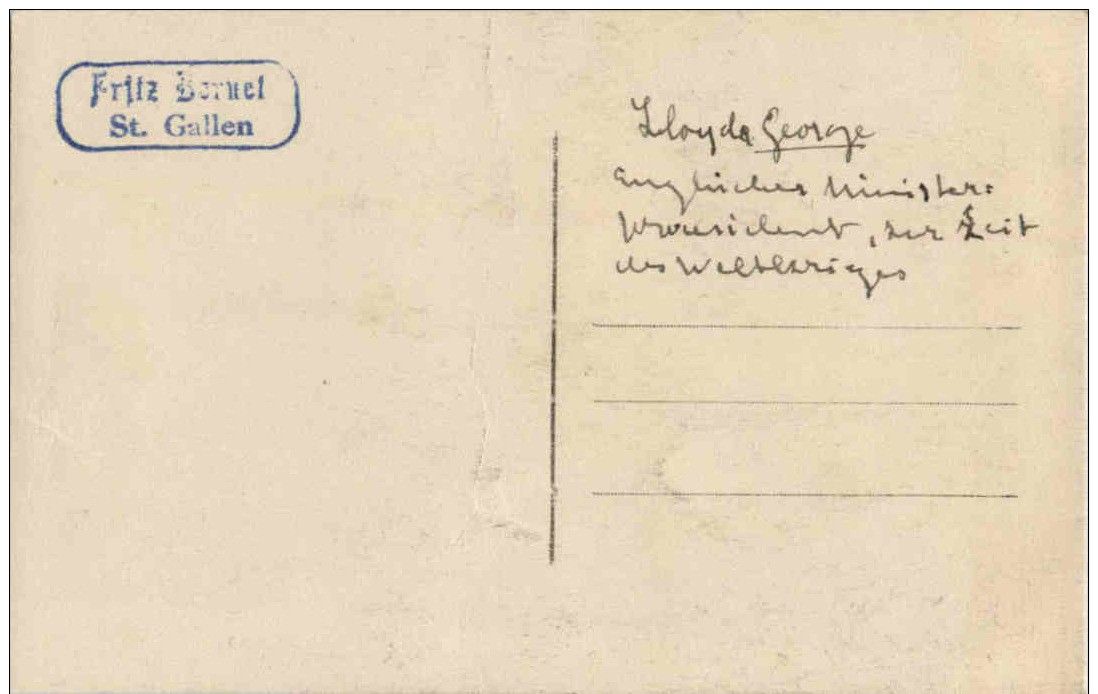 Fritz Bernet
St. Gallen
Lloyda George
Englischer Minister=
praesident, zur Zeit
des Weltkrieges